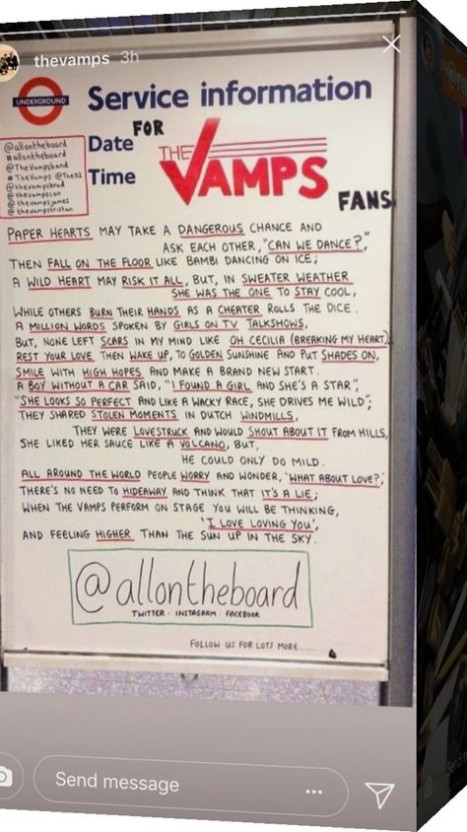 thevamps 3h
UNDERGROUND
Service information
Date FOR
Time
THE VAMPS
FANS
@allontheboard
#allontheboard
@TheVampsband
@thevampsbrad
@thevampscon
@thevampsjames
@thevampstristan
PAPER HEARTS MAY TAKE A DANGEROUS CHANCE AND
ASK EACH OTHER, "CAN WE DANCE?",
THEN FALL ON THE FLOOR LIKE BAMBI DANCING ON ICE;
A WILD HEART MAY RISK IT ALL, BUT, IN SWEATER WEATHER
SHE WAS THE ONE TO STAY COOL,
WHILE OTHERS BURN THEIR HANDS AS A CHEATER ROLLS THE DICE.
A MILLION WORDS SPOKEN BY GIRLS ON TV TALKSHOWS,
BUT, NONE LEFT SCARS IN MY MIND LIKE OH CECILIA (BREAKING MY HEART)
REST YOUR LOVE THEN WAKE UP, TO GOLDEN SUNSHINE AND PUT SHADES ON,
SMILE WITH HIGH HOPES AND MAKE A BRAND NEW START.
A BOY WITHOUT A CAR SAID, "I FOUND A GIRL AND SHE'S A STAR",
"SHE LOOKS SO PERFECT AND LIKE A WACKY RACE, SHE DRIVES ME WILD";
THEY SHARED STOLEN MOMENTS IN DUTCH WINDMILLS,
THEY WERE LOVESTRUCK AND WOULD SHOUT ABOUT IT FROM HILLS,
SHE LIKED HER SAUCE LIKE A VOLCANO, BUT,
HE COULD ONLY DO MILD.
ALL AROUND THE WORLD PEOPLE WORRY AND WONDER, 'WHAT ABOUT LOVE?',
THERE'S NO NEED TO HIDEAWAY AND THINK THAT IT'S A LIE;
WHEN THE VAMPS PERFORM ON STAGE YOU WILL BE THINKING,
'I LOVE LOVING YOU',
AND FEELING HIGHER THAN THE SUN UP IN THE SKY.
@allontheboard
TWITTER · INSTAGRAM · FACEBOOK
FOLLOW US FOR LOTS MORE...
Send message